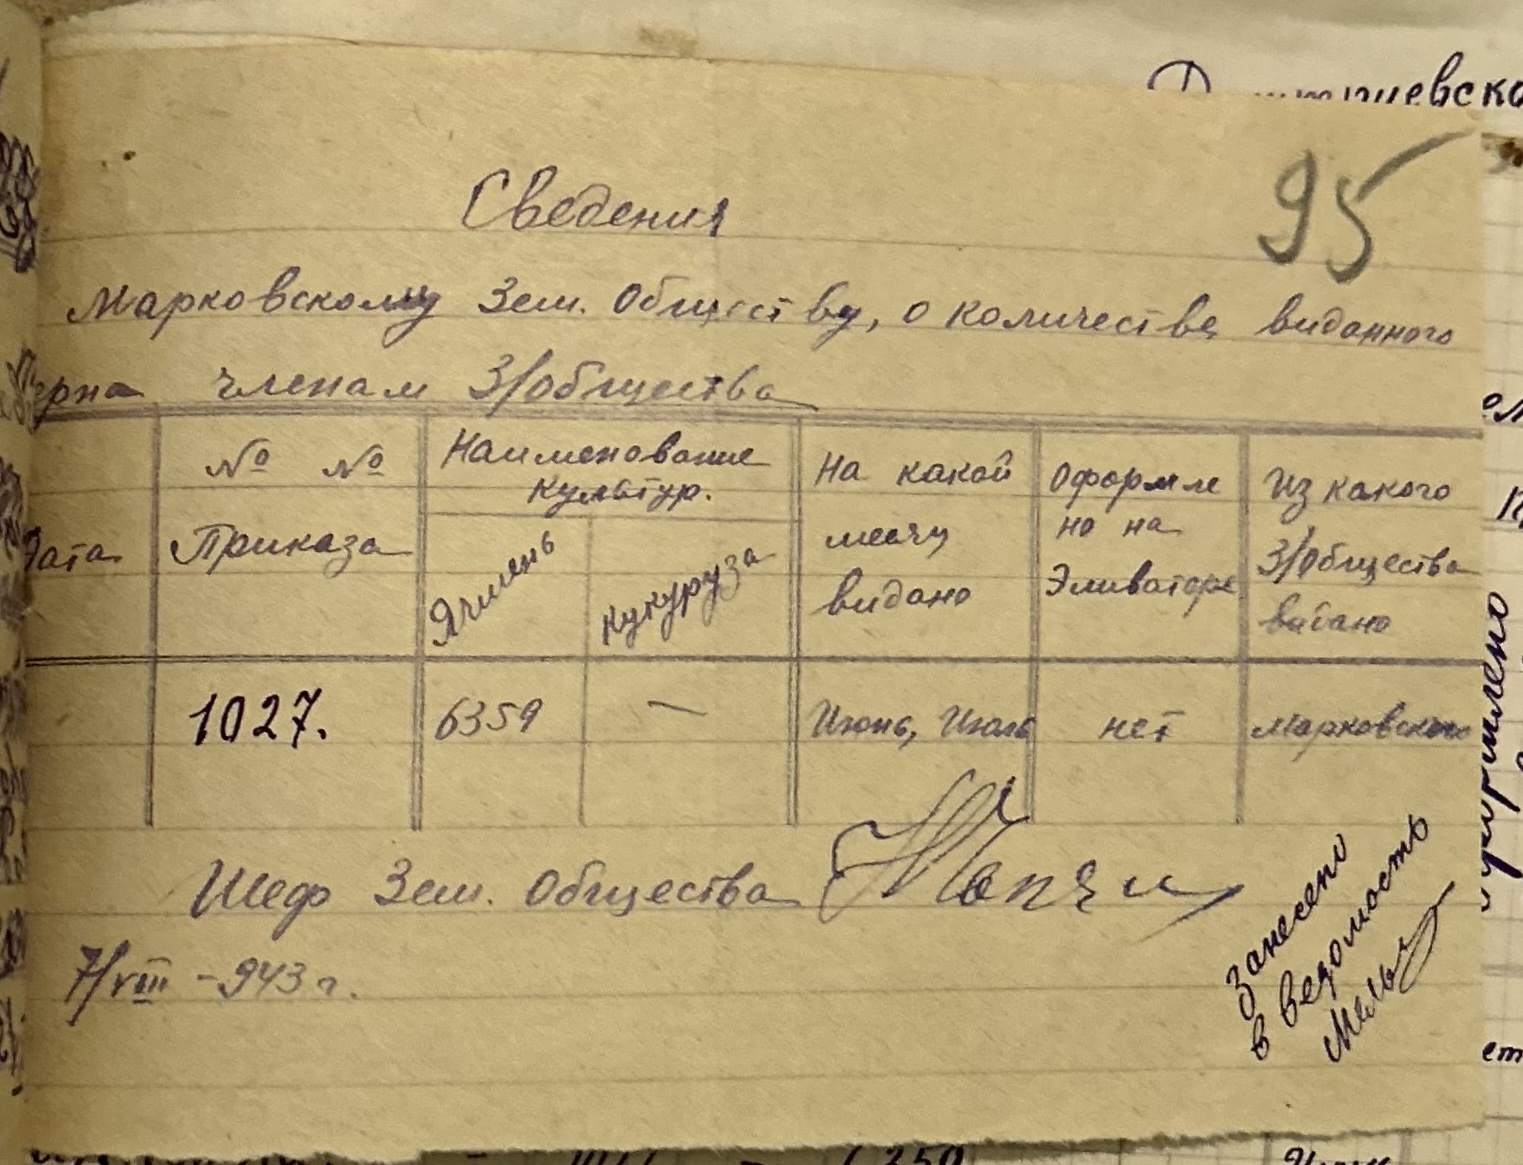 95
Сведения
Марковскому Зем. Обществу, о количестве виданного
зерна членам З/общества
Дата
№ № Приказа
Наименование культур.
Ячмень
Кукуруза
На какой месяц видано
Оформле но на Эливаторе
Из какого З/общества видано
1027.
6359
—
Июнь, Июль
нет
Марковского
Шеф Зем. Общества
7/VIII - 943 г.
занесено
в ведомость